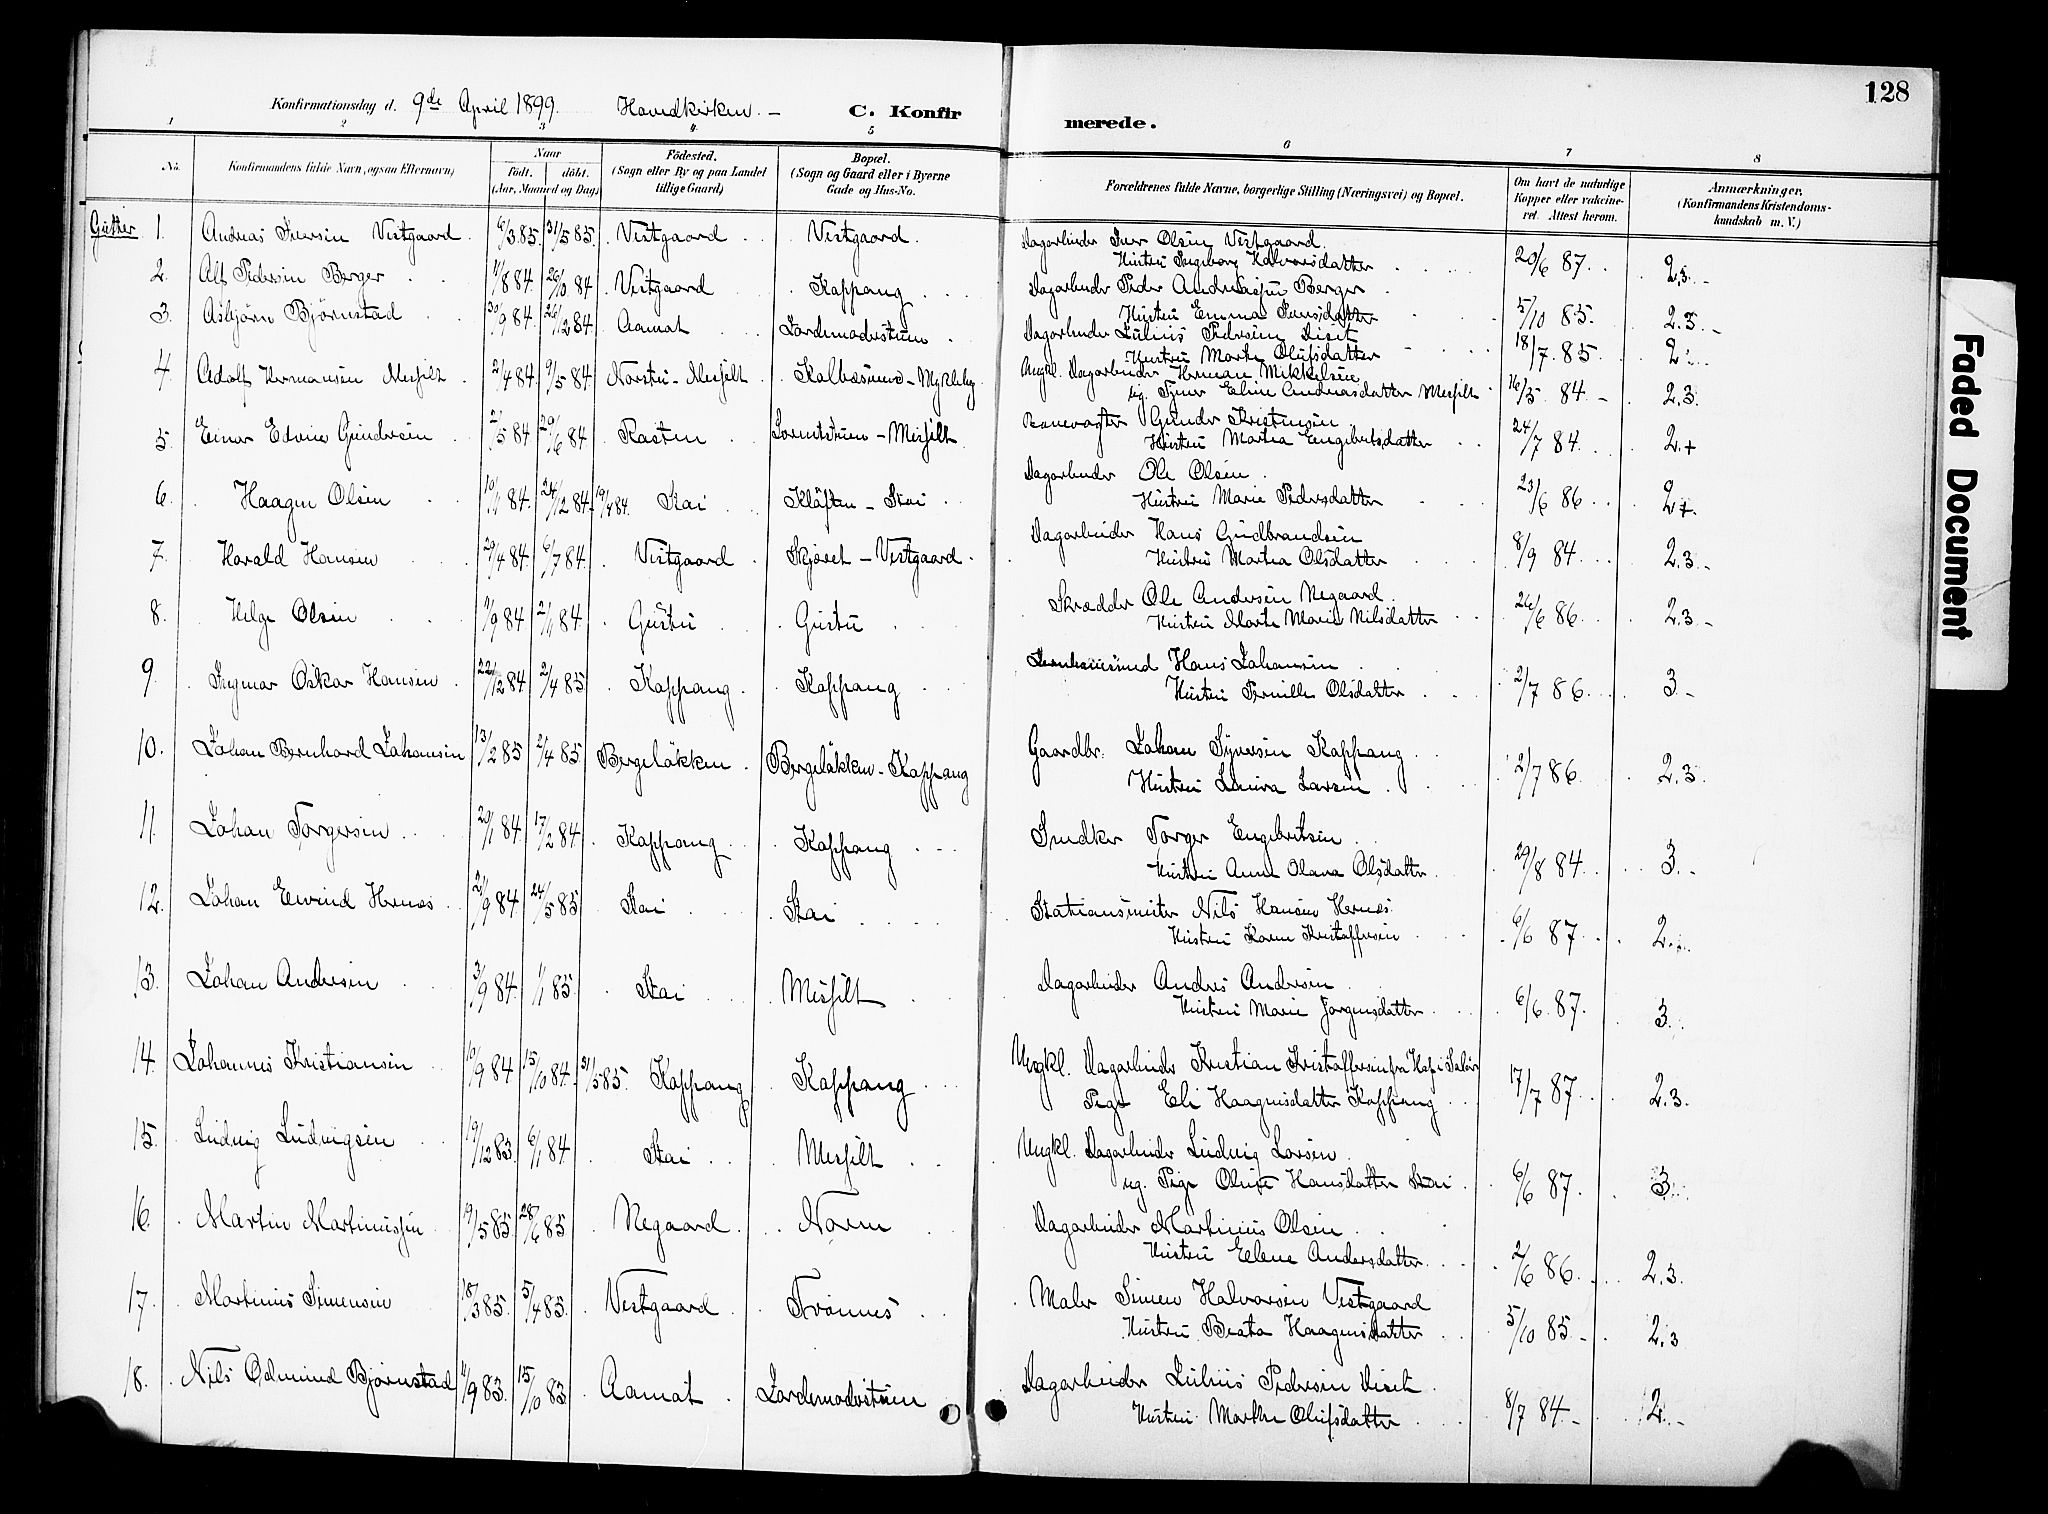 128
Konfirmationsdag d. 9de April 1899. Hovedkirken. — C. Konfirmerede.
1 2 3 4 5 6 7 8
No. Konfirmandens fulde Navn, (ogsaa Efternavn) Naar födt. döbt. (Aar, Maaned og Dag) Födested. (Sogn eller By og paa Landet tillige Gaard) Bopæl. (Sogn og Gaard eller i Byerne Gade og Hus-No. Forældrenes fulde Navne, borgerlige Stilling (Næringsvei) og Bopæl. Om havt de naturlige Kopper eller vakcineret. Attest herom. Anmærkninger, (Konfirmandens Kristendomskundskab m. V.)
Gutter 1. Andreas Iversen Vestgaard 6/3 85. 31/5 85. Vestgaard Vestgaard Dagarbeider Iver Olsen Vestgaard
Hustru Ingeborg Halvorsdatter 20/6 87. 2,3.
2. Alf Pedersen Berger 11/8 84 26/10 84 Vestgaard Koppang Dagarbeider Peder Andreassen Berger
Hustru Emma Jensdatter 5/10 85. 2.3.
3. Asbjørn Bjørnstad 30/9 84. 26/12 84. Aamot Dagarbeider Julius Pedersen Diset
Hustru Marthe Olufsdatter 18/7 85. 2
4. Adolf Hermansen Messelt 2/4 84. 9/5 84 Nordstu - Messelt Ungkl. Dagarbeider Herman Mikkelsen
og Pige Eline Andreasdatter Messelt 16/5 84. 2.3.
5. Einar Edvin Gundersen 2/5 84 29/6 84 Rasten Banevogter Gunder Kristensen
Hustru Martha Engebretsdatter 24/7 84. 2.+
6. Haagen Olsen 10/11 84. 24/12 84. 19/4 84. Stai Kløften - Stai Dagarbeider Ole Olsen
Hustru Marie Pedersdatter 23/6 86 2+.
7. Harald Hansen 29/4 84. 6/7 84. Vestgaard Skjøret - Vestgaard Dagarbeider Hans Gudbrandsen
Hustru Martea Olsdatter 8/9 84 2.3
8. Helge Olsen 9/9 84 2/11 84. Gustu Gustu Skrædder Ole Andersen Negaard
Hustru Marte Marie Nilsdatter 26/6 86. 2.3.
9. Ingmar Oskar Hansen 22/12 84 2/4 85 Koppang Koppang Hans Johansen
Hustru Pernille Olsdatter 2/7 86. 3
10. Johan Bernhard Johansen 13/2 85 2/4 85 Bergeløkken Bergeløkken - Koppang Gaardbr. Johan Syversen Koppang
Hustru Laura Larsen 2/7 86. 2.3.
11. Johan Torgersen 20/1 84. 17/2 84. Koppang Koppang Snedker Torger Engebretsen
Hustru Anne Olava Olsdatter 29/8 84. 3.
12. Johan Eivind Hernæs 21/9 84 24/5 85 Stai Stai Stationsmester Nils Hansen Hernæs
Hustru Karen Kristoffersen 6/6 87. 2.
13. Johan Andersen 3/9 84. 1/1 85. Stai Messelt Dagarbeider Andres Andersen
Hustru Marie Jørgensdatter 6/6 87. 3.
14. Johannes Kristiansen 10/9 84 15/10 84. 31/5 85. Koppang Koppang Ungkl. Dagarbeider Kristian Kristoffersen fra Hof i Solør
Pige Eli Haagensdatter Koppang 17/7 87 2.3.
15. Ludvig Ludvigsen 19/12 83. 6/1 84 Stai Messelt Ungkl. Dagarbeider Ludvig Larsen
og Pige Oline Hansdatter Stai 6/6 87. 3.
16. Martin Martinussen 19/5 85. 28/6 85 Negaard Noren Dagarbeider Martinius Olsen
Hustru Elene Andersdatter 2/6 86. 2.3.
17. Martinus Simensen 18/3 85. 5/4 85. Vestgaard Trønnes Maler Simen Halvorsen Vestgaard
Hustru Beata Haagensdatter 5/10 85. 2.3
18. Nils Odmund Bjørnstad 11/9 83. 15/10 83 Aamot Jordemoderstuen Dagarbeider Julius Pedersen Diset
Hustru Marthe Olufsdatter 8/7 84. 2.
Faded Document